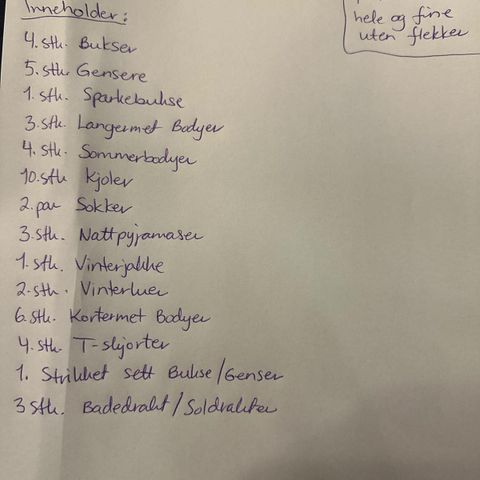 Inneholder:
hele og fine
uten flekker
4. stk. Bukser
5. stk. Gensere
1. stk. Sparkebukse
3. stk. Langermet Bodyer
4. stk. Sommerbodyer
10. stk Kjoler
2. par Sokker
3. stk. Nattpyjamaser
1. stk. Vinterjakke
2. stk. Vinterluer
6. stk. Kortermet Bodyer
4. stk T-skjorter
1. Strikket sett Bukse/Genser
3 stk. Badedrakt/Soldrakter